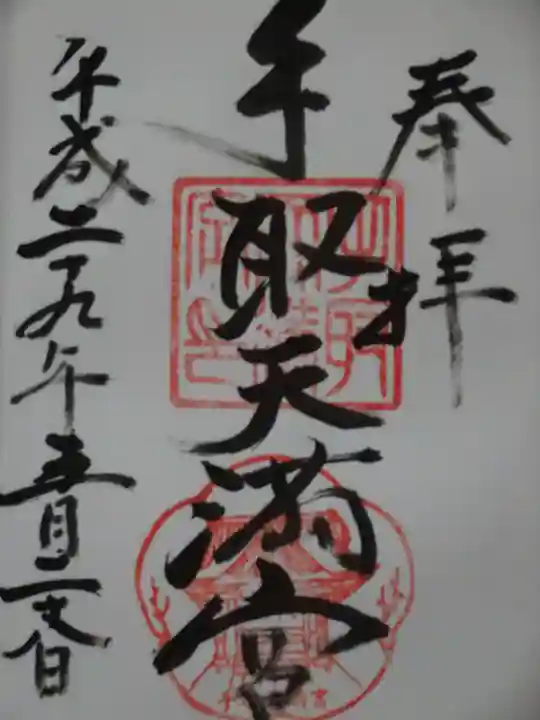 奉拝
手取天満宮
平成二十九年五月二十六日